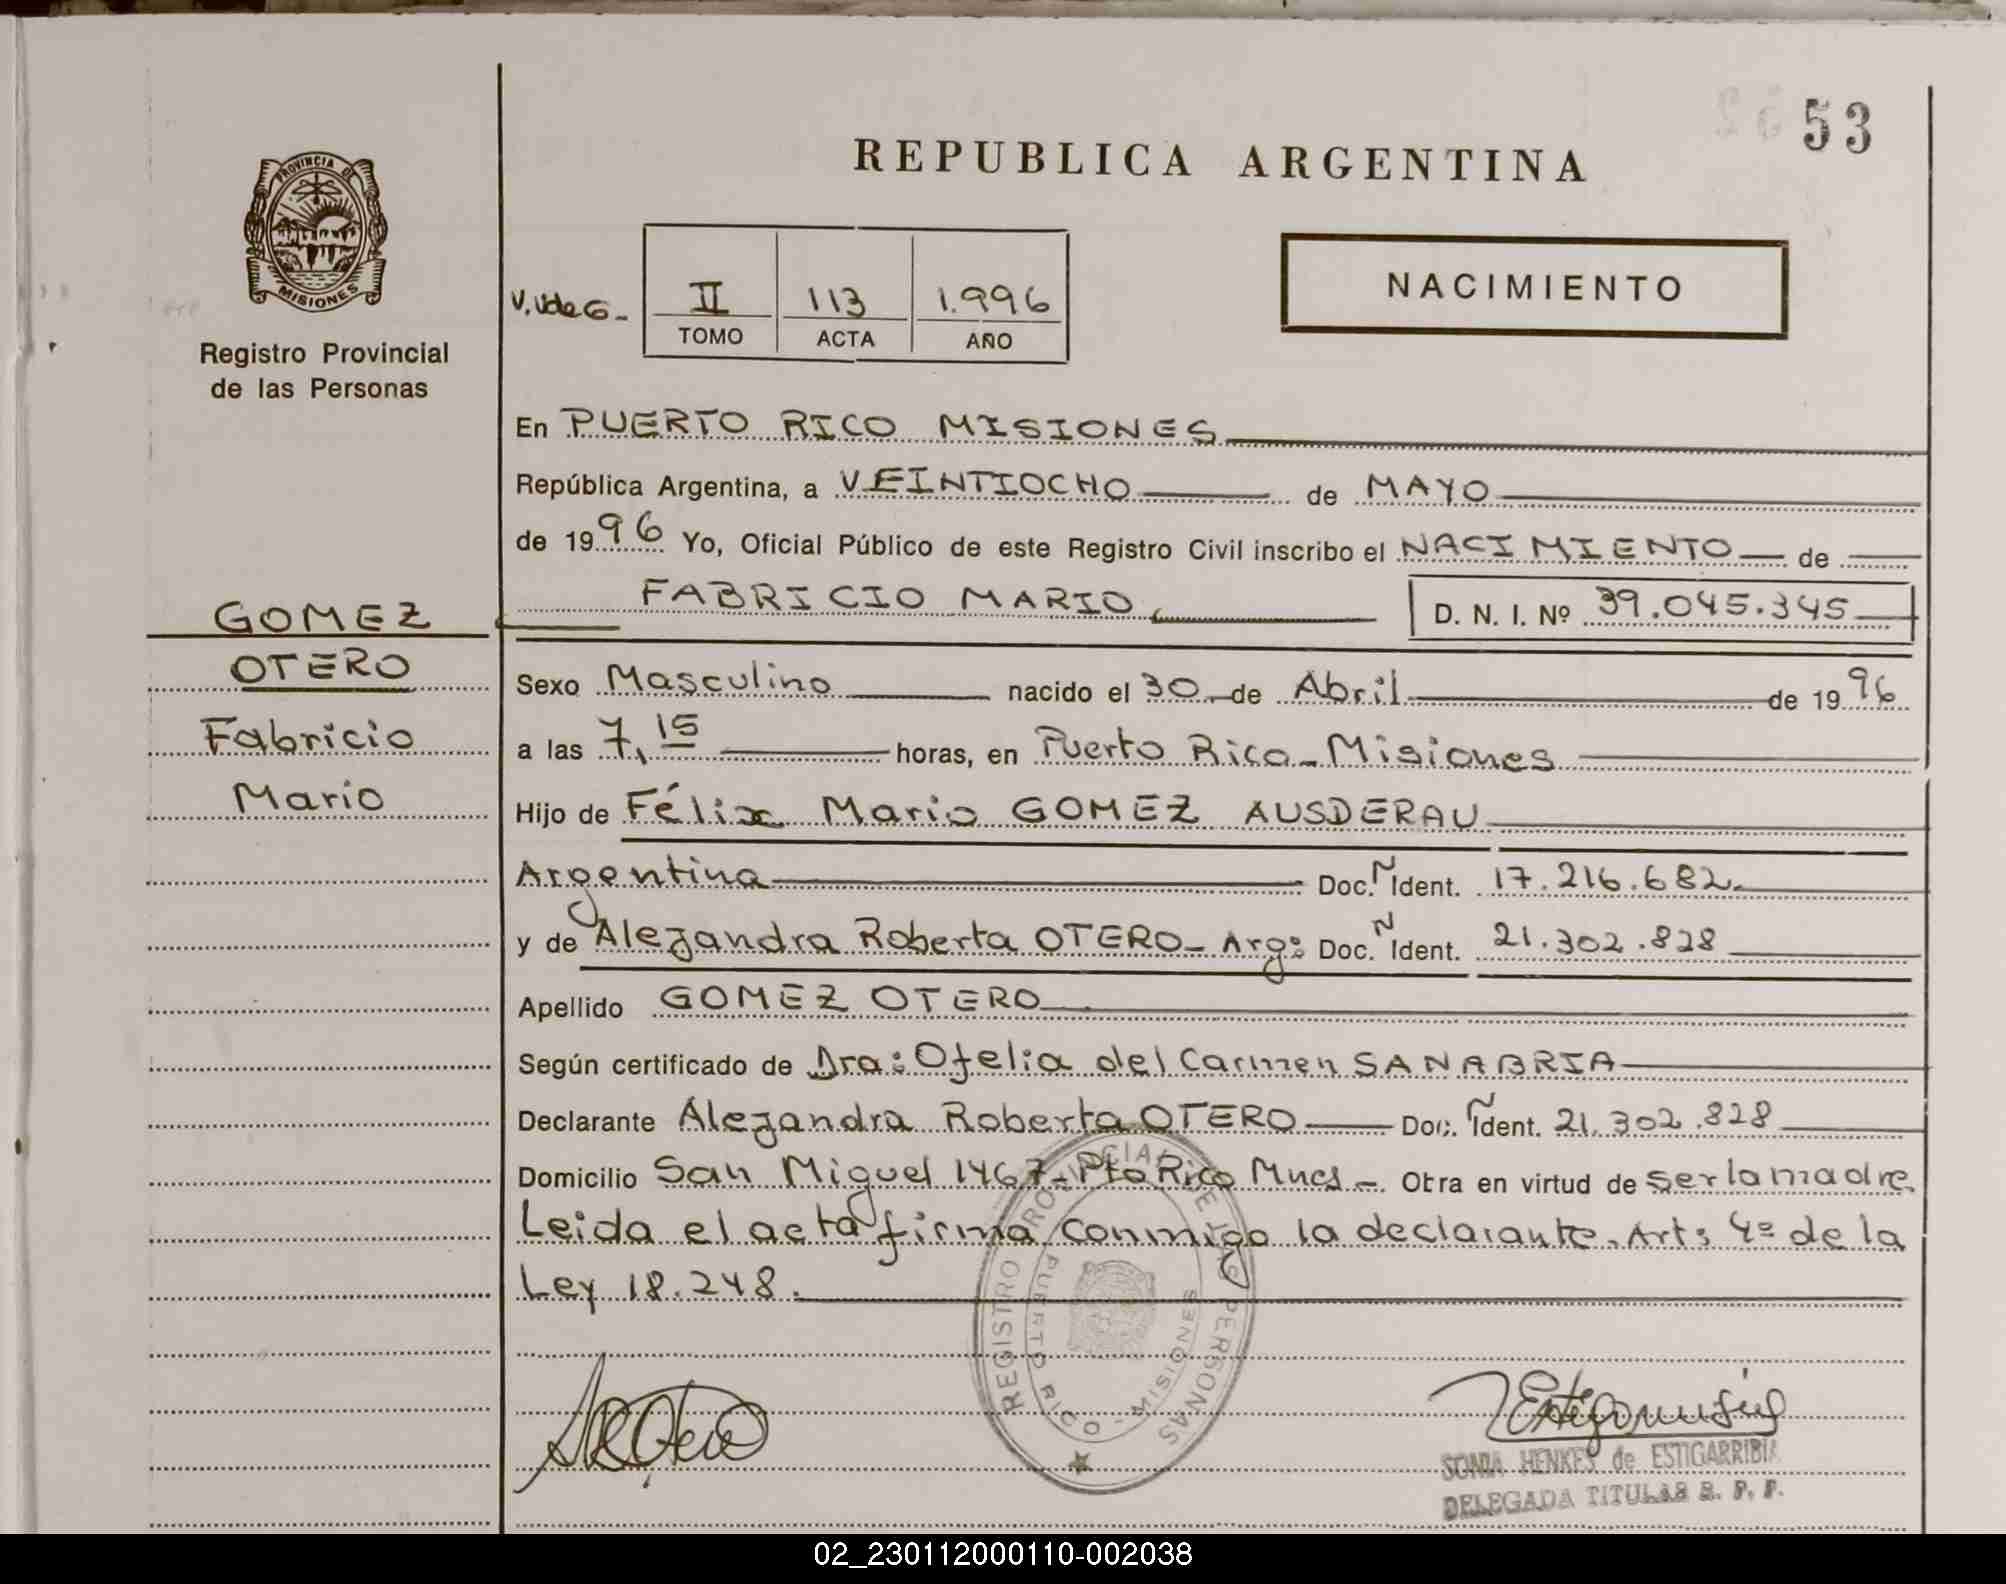 53
REPUBLICA ARGENTINA
PROVINCIA DE
MISIONES
Registro Provincial
de las Personas
V. Ude G -
II 113 1.996
TOMO ACTA AÑO
NACIMIENTO
En PUERTO RICO MISIONES
República Argentina, a VEINTIOCHO de MAYO
de 1996 Yo, Oficial Público de este Registro Civil inscribo el NACIMIENTO de
FABRICIO MARIO D. N. I. Nº 39.045.345
GOMEZ
OTERO
Fabricio
Mario
Sexo Masculino nacido el 30 de Abril de 1996
a las 7,15 horas, en Puerto Rico - Misiones
Hijo de Félix Mario GOMEZ AUSDERAU
Argentina Doc. N Ident. 17.216.682.
y de Alejandra Roberta OTERO - Arg: Doc. N Ident. 21.302.828
Apellido GOMEZ OTERO
Según certificado de Dra: Ofelia del Carmen SANABRIA
Declarante Alejandra Roberta OTERO Doc. N Ident. 21.302.828
Domicilio San Miguel 1467 - Pto Rico Mnes - Otra en virtud de ser la madre
Leida el acta firma conmigo la declarante. Art: 4º de la
Ley 18.248.
REGISTRO PROVINCIAL DE LAS PERSONAS
PUERTO RICO - MISIONES
SONIA HENKES de ESTIGARRIBIA
DELEGADA TITULAR R. P. P.
02_230112000110-002038